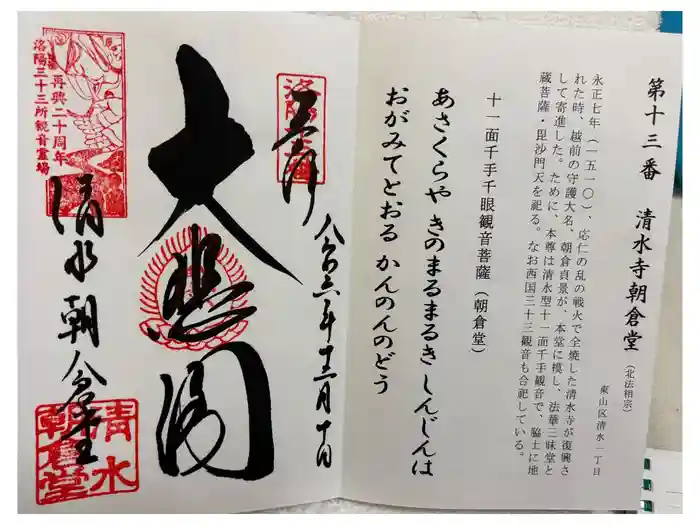 第十三番 清水寺朝倉堂（北法相宗）
東山区清水一丁目
永正七年（一五一〇）、応仁の乱の戦火で全焼した清水寺が復興さ
れた時、越前の守護大名、朝倉貞景が、本堂に模し、法華三昧堂と
して寄進した。ために、本尊は清水型十一面千手観音で、脇士に地
蔵菩薩・毘沙門天を祀る。なお西国三十三観音も合祀している。
十一面千手千眼観音菩薩（朝倉堂）
あさくらや きのまるまるき しんじんは
おがみてとおる かんのんのどう
奉拝
令和六年十二月十日
大悲閣
清水 朝倉堂
再興二十周年
洛陽三十三所観音霊場
清水
朝倉堂